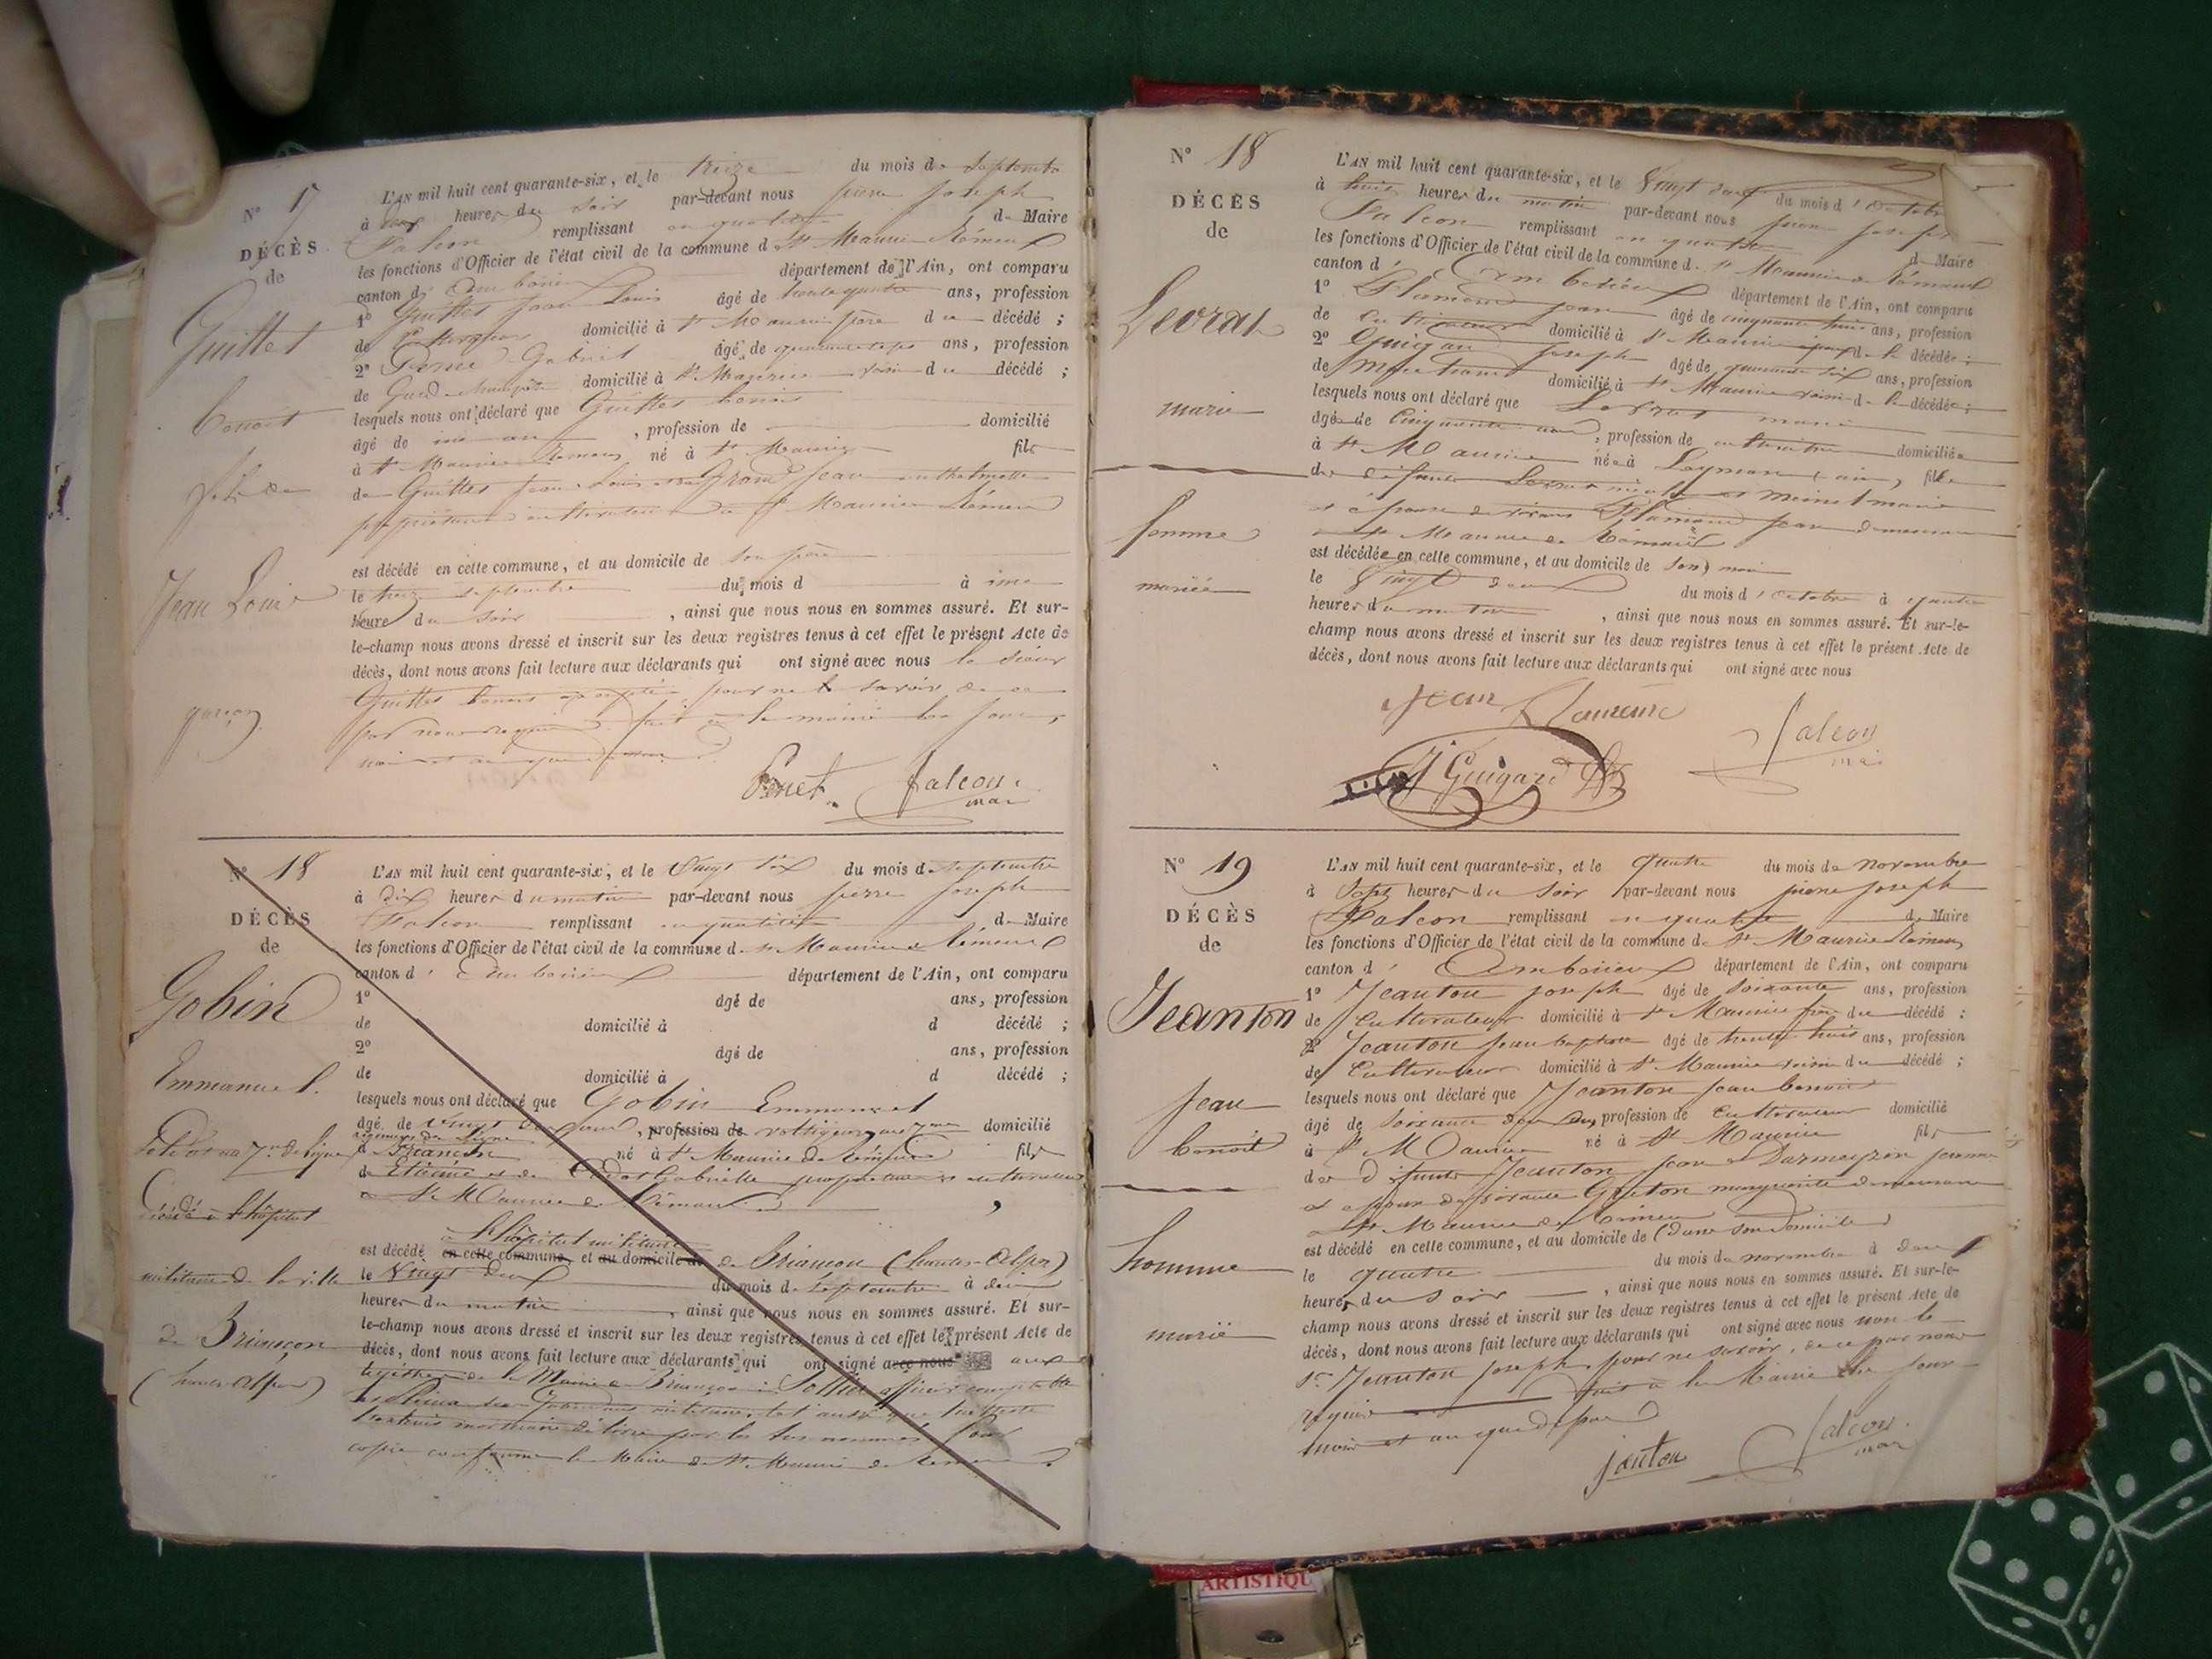 N° 17
DÉCÈS
de
Guillet
Benoit
fils de
Jean Louis
garçon
L'AN mil huit cent quarante-six, et le treize du mois de Septembre
à heures du soir par-devant nous pierre joseph
Falcon remplissant en qualité de Maire
les fonctions d'Officier de l'état civil de la commune d St Maurice Rémens
canton d' Ambérieux département de l'Ain, ont comparu
1° Guillet Jean Louis âgé de trente quatre ans, profession
de Cultivateur domicilié à St Maurice père du décédé ;
2° Penet Gabriel âgé de quarante sept ans, profession
de Garde champêtre domicilié à St Maurice voisin du décédé ;
lesquels nous ont déclaré que Guillet benoit
âgé de un an , profession de domicilié
à St Maurice Rémens né à St Maurice fils
de Guillet Jean Louis et de Grand Jean
propriétaires cultivateurs à St Maurice Rémens
est décédé en cette commune, et au domicile de son père
le treize septembre du mois d à une
heure du soir , ainsi que nous nous en sommes assuré. Et sur-
le-champ nous avons dressé et inscrit sur les deux registres tenus à cet effet le présent Acte de
décès, dont nous avons fait lecture aux déclarants qui ont signé avec nous le sieur
Guillet excepté pour ne le savoir de ce
par nous requis fait à la mairie les jour,
mois et an que dessus
Penet Falcon
maire
N° 18
DÉCÈS
de
Gobin
Emmanuel
Soldat au 7me de ligne
Décédé à l'hôpital
militaire de la ville
de Briançon
(hautes Alpes)
L'AN mil huit cent quarante-six, et le Vingt six du mois de septembre
à dix heures du matin par-devant nous pierre joseph
Falcon remplissant en qualité de Maire
les fonctions d'Officier de l'état civil de la commune de St Maurice de Rémens
canton d' Ambérieux département de l'Ain, ont comparu
1° âgé de ans, profession
de domicilié à d décédé ;
2° âgé de ans, profession
de domicilié à d décédé ;
lesquels nous ont déclaré que Gobin Emmanuel
âgé de Vingt ans, profession de voltigeur au 7me domicilié
régiment de Ligne
à Briançon né à St Maurice de Rémens fils
de Etienne et de Gabrielle propriétaires cultivateurs
à St Maurice de Rémens ,
à l'hôpital militaire
est décédé en cette commune, et au domicile de de Briançon (hautes Alpes)
le Vingt deux du mois de Septembre à
heures du matin , ainsi que nous nous en sommes assuré. Et sur-
le-champ nous avons dressé et inscrit sur les deux registres tenus à cet effet le présent Acte de
décès, dont nous avons fait lecture aux déclarants qui ont signé avec nous aux
de la Mairie de Briançon officier comptable
militaire
l'extrait mortuaire délivré par les sus nommés Pour
copie conforme le Maire de St Maurice de Rémens
N° 18
DÉCÈS
de
Levrat
marie
femme
mariée
L'AN mil huit cent quarante-six, et le Vingt deux du mois d' octobre
à huit heures du matin par-devant nous pierre joseph
Falcon remplissant en qualité de Maire
les fonctions d'Officier de l'état civil de la commune d. St Maurice de Rémens
canton d' Ambérieux département de l'Ain, ont comparu
1° Jean âgé de cinquante huit ans, profession
de cultivateur domicilié à St Maurice époux de la décédée ;
2° Guigard Joseph âgé de quarante six ans, profession
de domicilié à St Maurice voisin de la décédée ;
lesquels nous ont déclaré que Levrat marie
âgée de Cinquante , profession de cultivatrice domiciliée
à St Maurice née à Leyment (ain) fille
de défunts Levrat et marie
et épouse de vivant Jean demeurant
à St Maurice de Rémens
est décédée en cette commune, et au domicile de son mari
le Vingt deux du mois d' octobre à quatre
heures du matin , ainsi que nous nous en sommes assuré. Et sur-le-
champ nous avons dressé et inscrit sur les deux registres tenus à cet effet le présent Acte de
décès, dont nous avons fait lecture aux déclarants qui ont signé avec nous
Jean
Falcon
mai
J Guigard
N° 19
DÉCÈS
de
Jeanton
Jean
benoit
homme
marié
L'AN mil huit cent quarante-six, et le quatre du mois de novembre
à Sept heures du soir par-devant nous pierre joseph
Falcon remplissant en qualité de Maire
les fonctions d'Officier de l'état civil de la commune de St Maurice Rémens
canton d' Ambérieux département de l'Ain, ont comparu
1° Jeanton joseph âgé de soixante ans, profession
de Cultivateur domicilié à St Maurice du décédé ;
2° Jeanton jean baptiste âgé de trente huit ans, profession
de Cultivateur domicilié à St Maurice voisin du décédé ;
lesquels nous ont déclaré que Jeanton jean benoit
âgé de soixante deux ans, profession de Cultivateur domicilié
à St Maurice né à St Maurice fils
de défunts Jeanton jean et
et époux de vivante marguerite demeurant
à St Maurice de Rémens
est décédé en cette commune, et au domicile de (dans son domicile)
le quatre du mois de novembre à deux
heures du soir , ainsi que nous nous en sommes assuré. Et sur-le-
champ nous avons dressé et inscrit sur les deux registres tenus à cet effet le présent Acte de
décès, dont nous avons fait lecture aux déclarants qui ont signé avec nous non le
Sr Jeanton Joseph pour ne savoir, de ce par nous
requis fait à la Mairie les jour
mois et an que dessus
janton Falcon
mai
ARTISTIQU